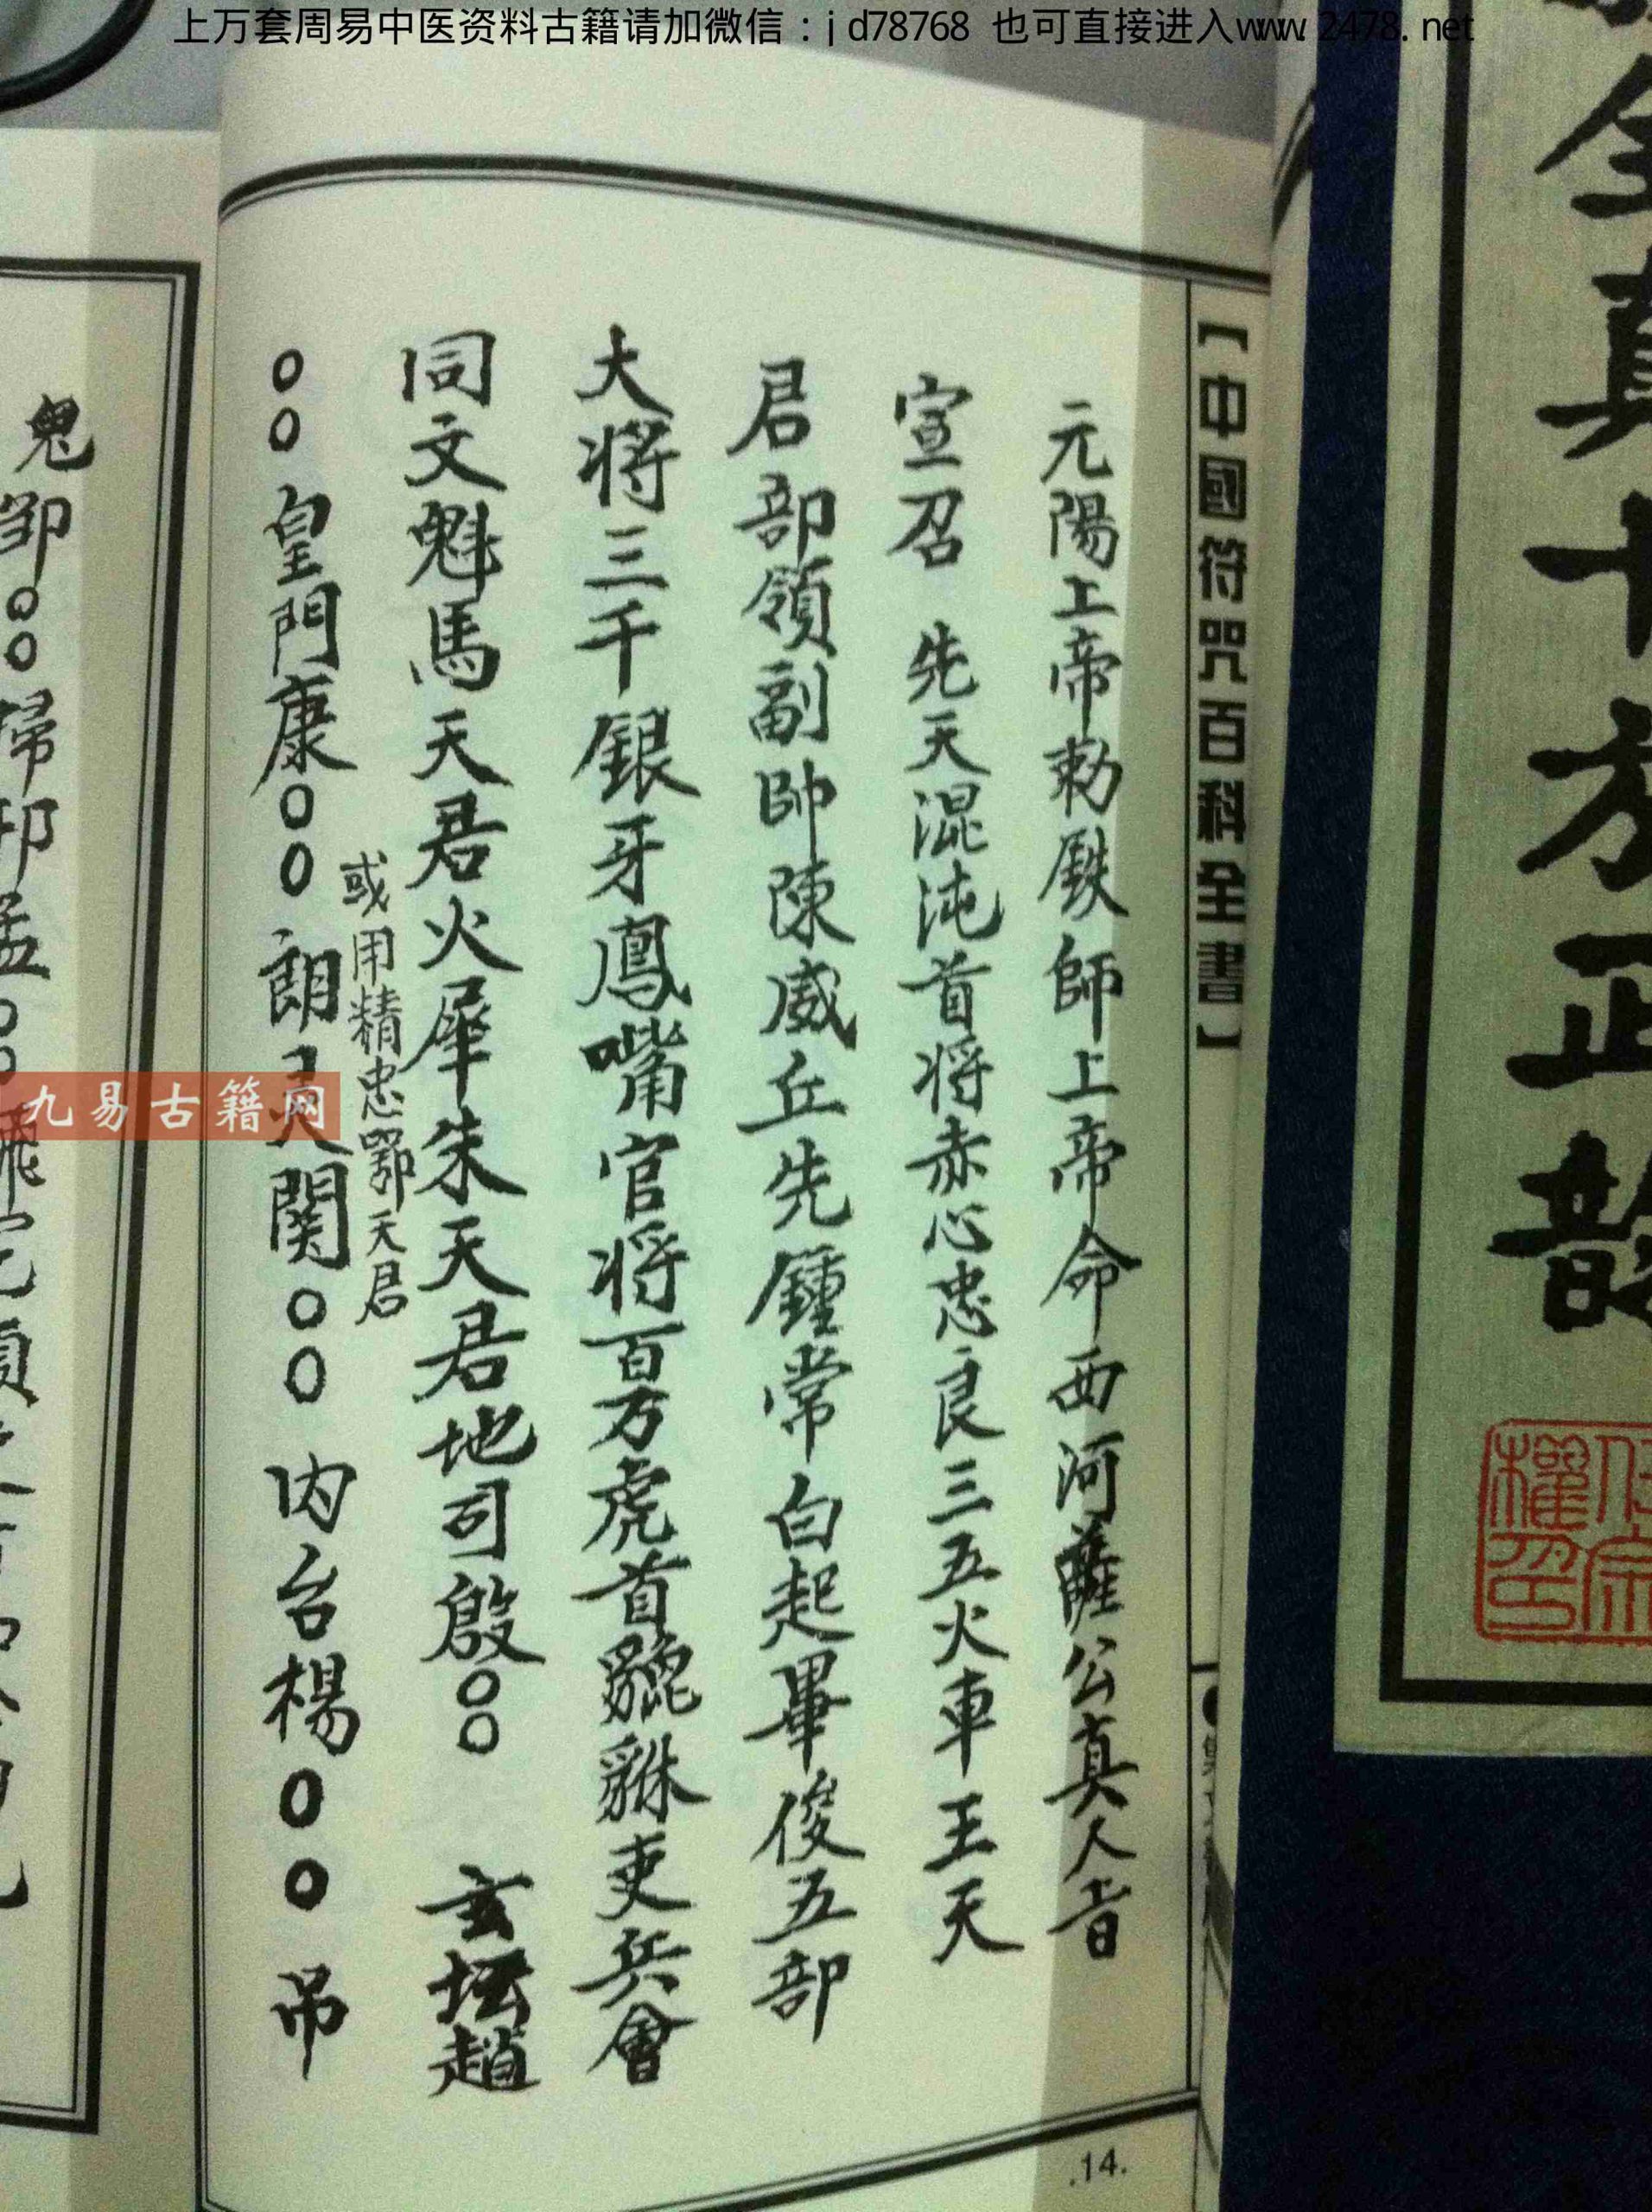 上万套周易中医资料古籍请加微信：jd78768 也可直接进入www.2478.net
全真十方正韵
【中國符咒百科全書】
元陽上帝勅鉄師上帝命西河薩公真人音
宣召 先天混沌首将赤心忠良三五火車王天
君部領副帥陳威丘先鍾常白起畢俊五部
大将三千銀牙鳳嘴官将百万虎首貔貅吏兵會
同文魁馬天君火犀朱天君地司殷○○ 玄坛趙
或用精忠鄂天君
○○皇門康○○朗灵関○○ 内台楊○○吊
鬼邹○○
九易古籍网
.14.